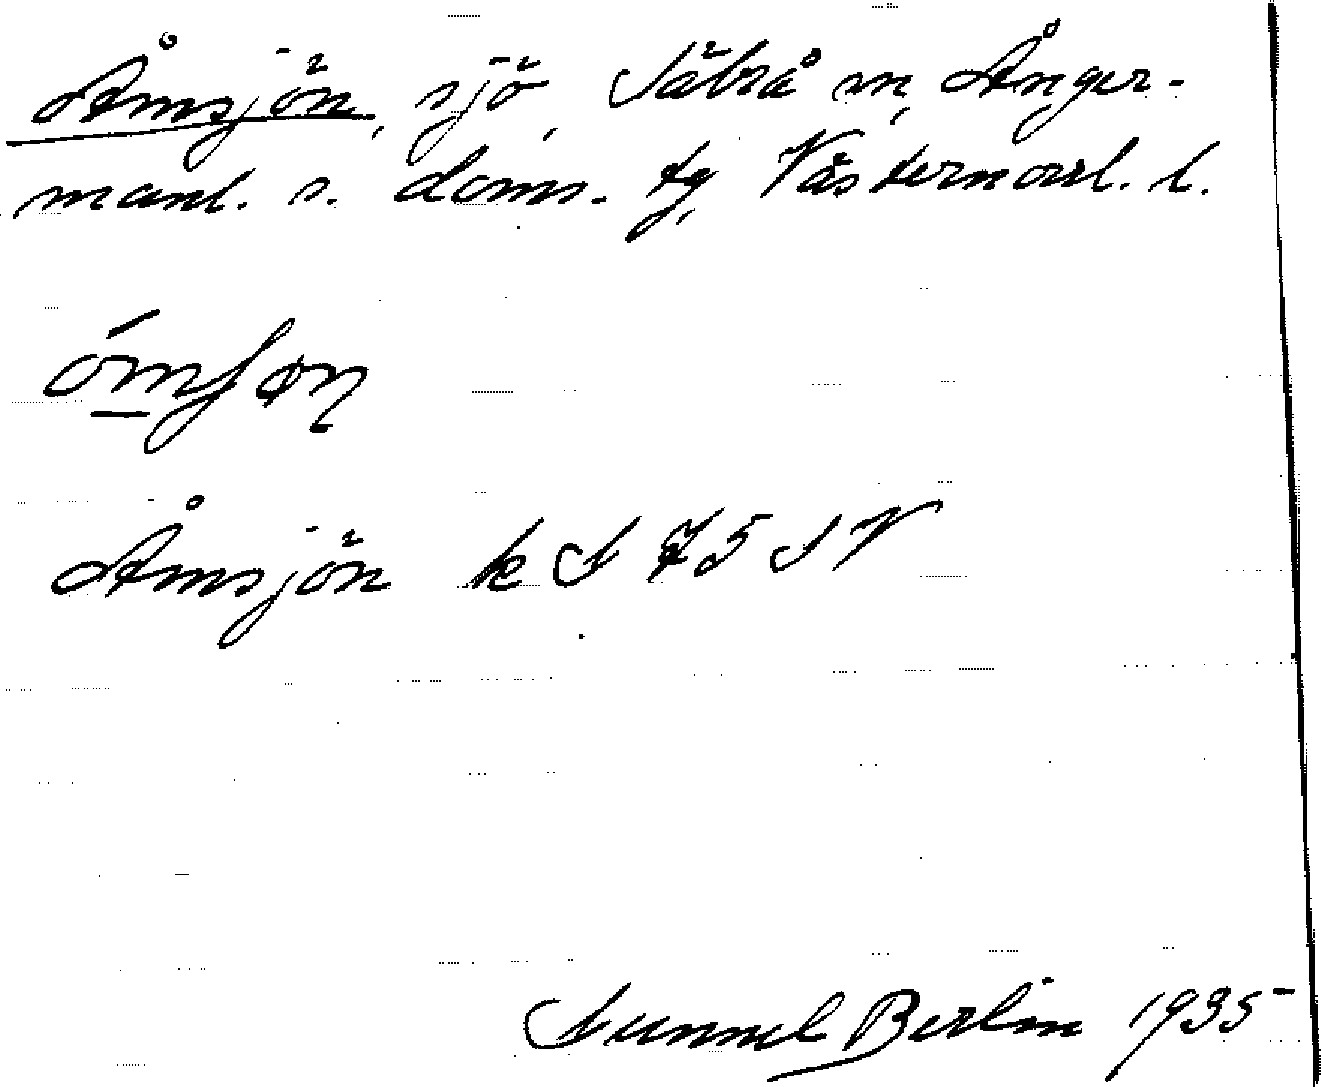 Åmsjön, sjö, Säbrå sn, Ånger-
manl. s. doms. tg, Västernorrl. l.
ómʃøn
Åmsjön k S 75 SV
Gunnel Berlin 1935